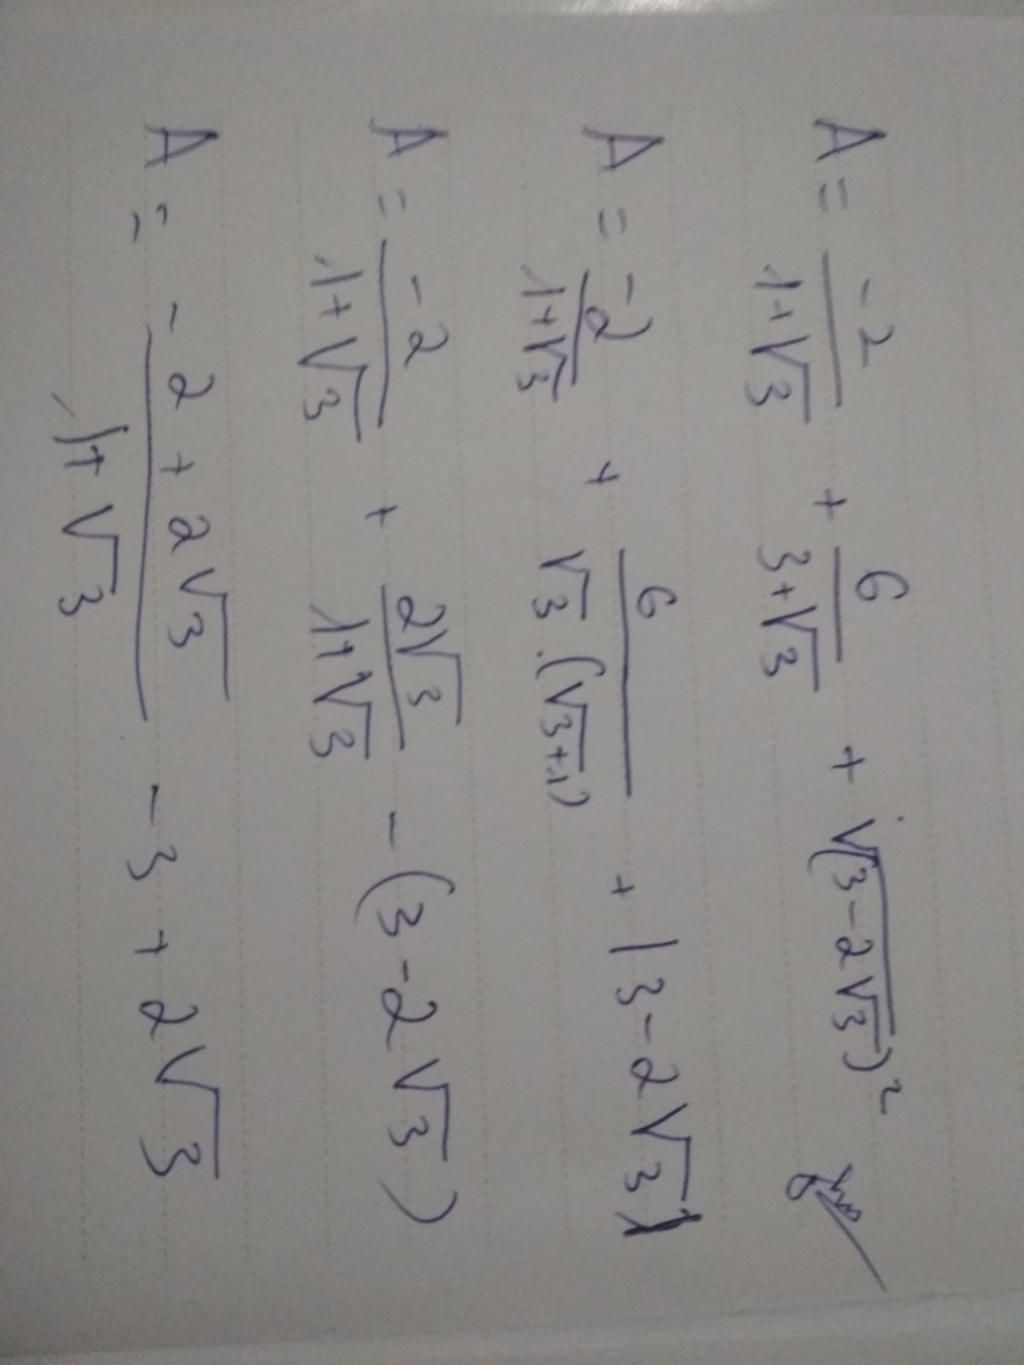 A = -2/(1+√3) + 6/(3+√3) + √(3-2√3)²
A = -2/(1+√3) + 6/(√3.(√3+1)) + |3-2√3|
A = -2/(1+√3) + 2√3/(1+√3) - (3-2√3)
A = (-2+2√3)/(1+√3) - 3 + 2√3